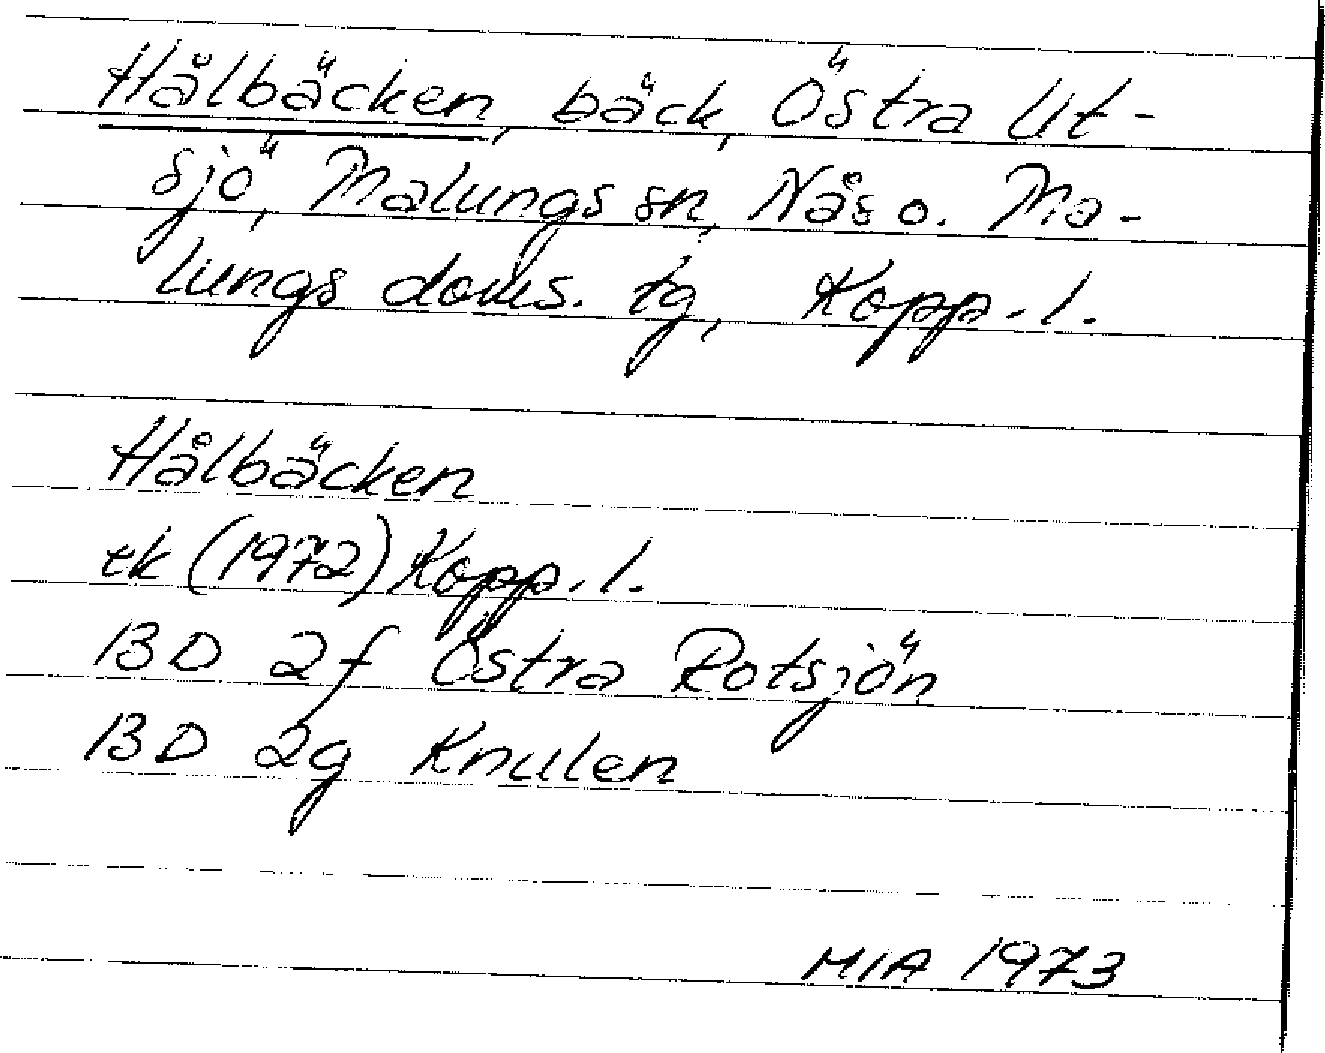 Hålbäcken, bäck, Östra Ut-
sjö, Malungs sn, Nås o. Ma-
lungs doms. tg, Kopp. l.
Hålbäcken
ek (1972) Kopp. l.
13D 2f Östra Rotsjön
13D 2g Knulen
MIA 1973